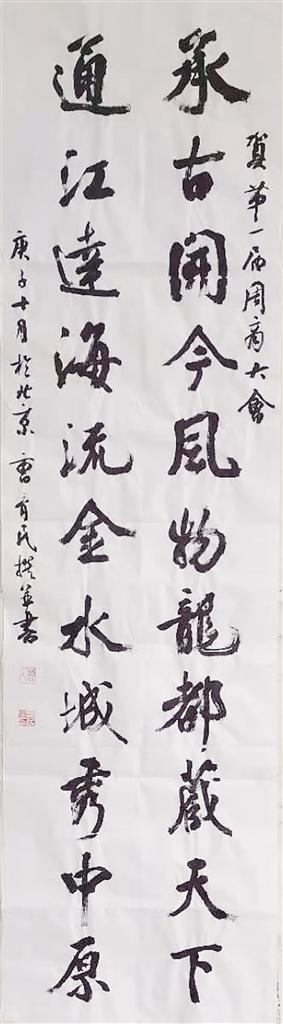 賀第一届周商大會
承古開今風物龍都藏天下
通江達海流金水城秀中原
庚子十月於北京曹育民撰並書